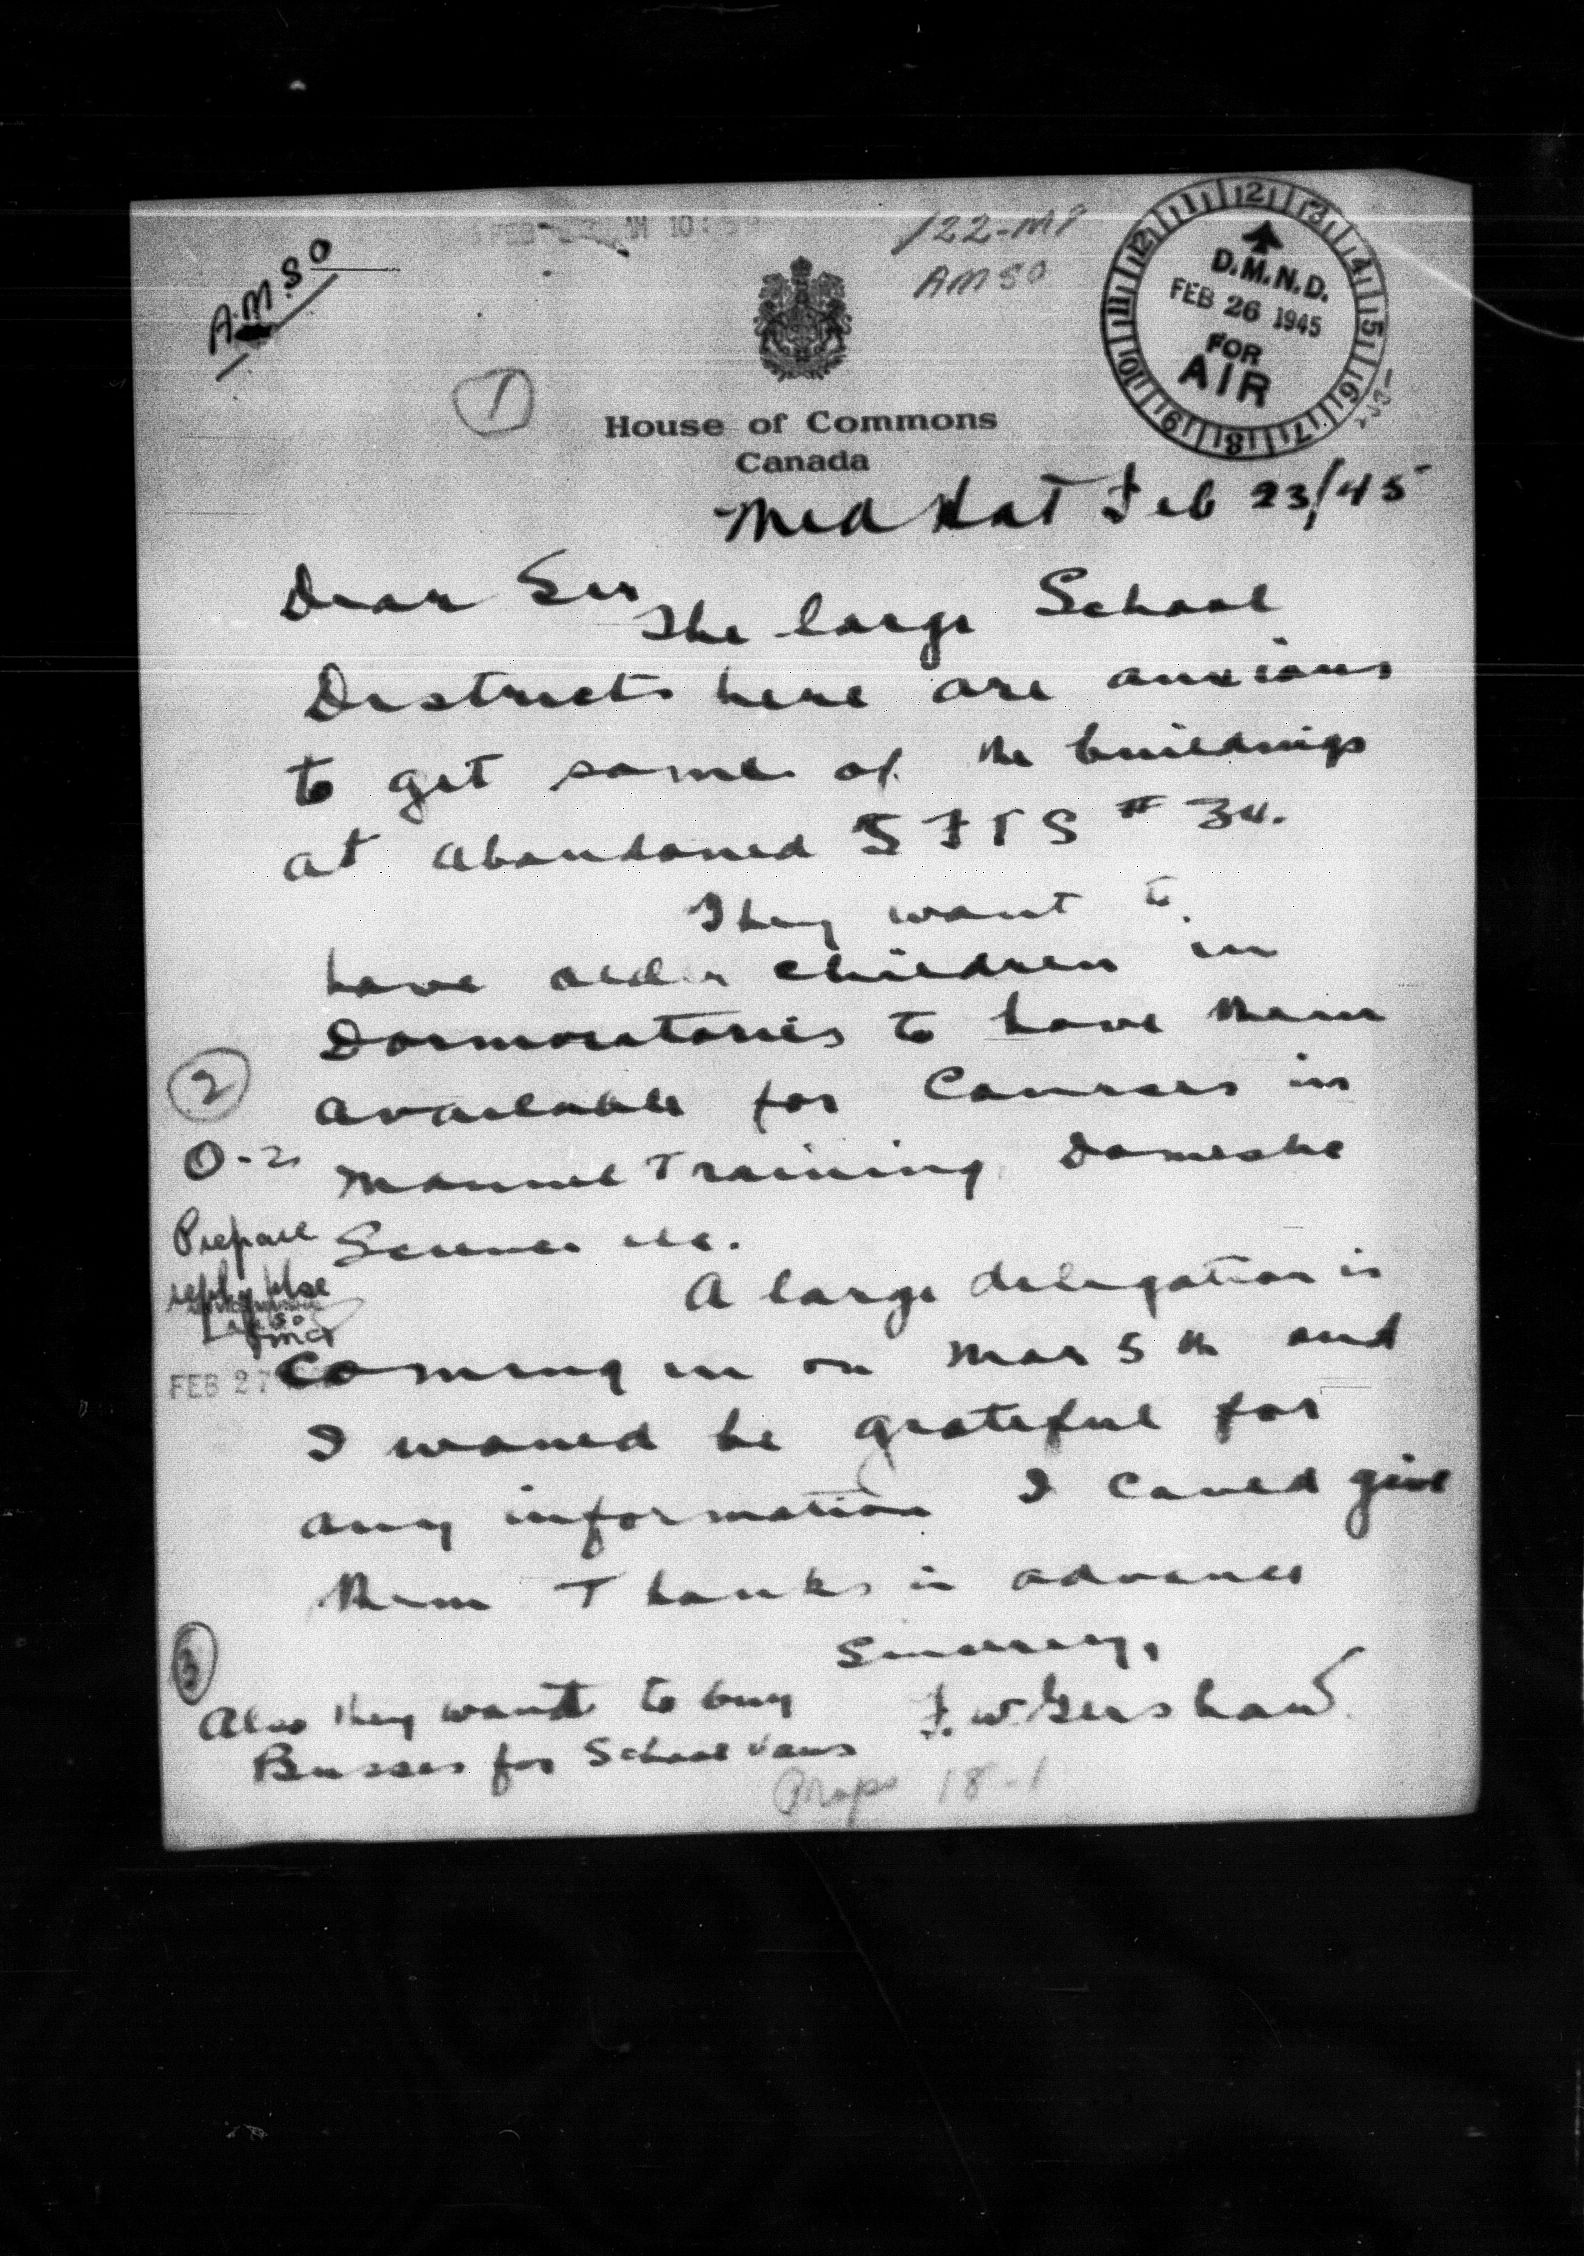 A.M.S.O
122-M9
AMSO
D.M.N.D.
FEB 26 1945
FOR
AIR
1
House of Commons
Canada
Med Hat Feb 23/45
Dear Sir
The large School
Districts here are anxious
to get some of the buildings
at abandoned SFTS # 34.
They want to
have older children in
Dormoratories to have them
available for Courses in
Manuel Training Domestic
Science etc.
A large delegation is
coming in on Mar 5th and
I would be grateful for
any information I could give
them Thanks in advance
Sincerely,
F. W. Gershaw
2
O-2
Prepare
reply plse
FEB 27
3
Also they want to buy
Busses for School Vans
Props 18-1